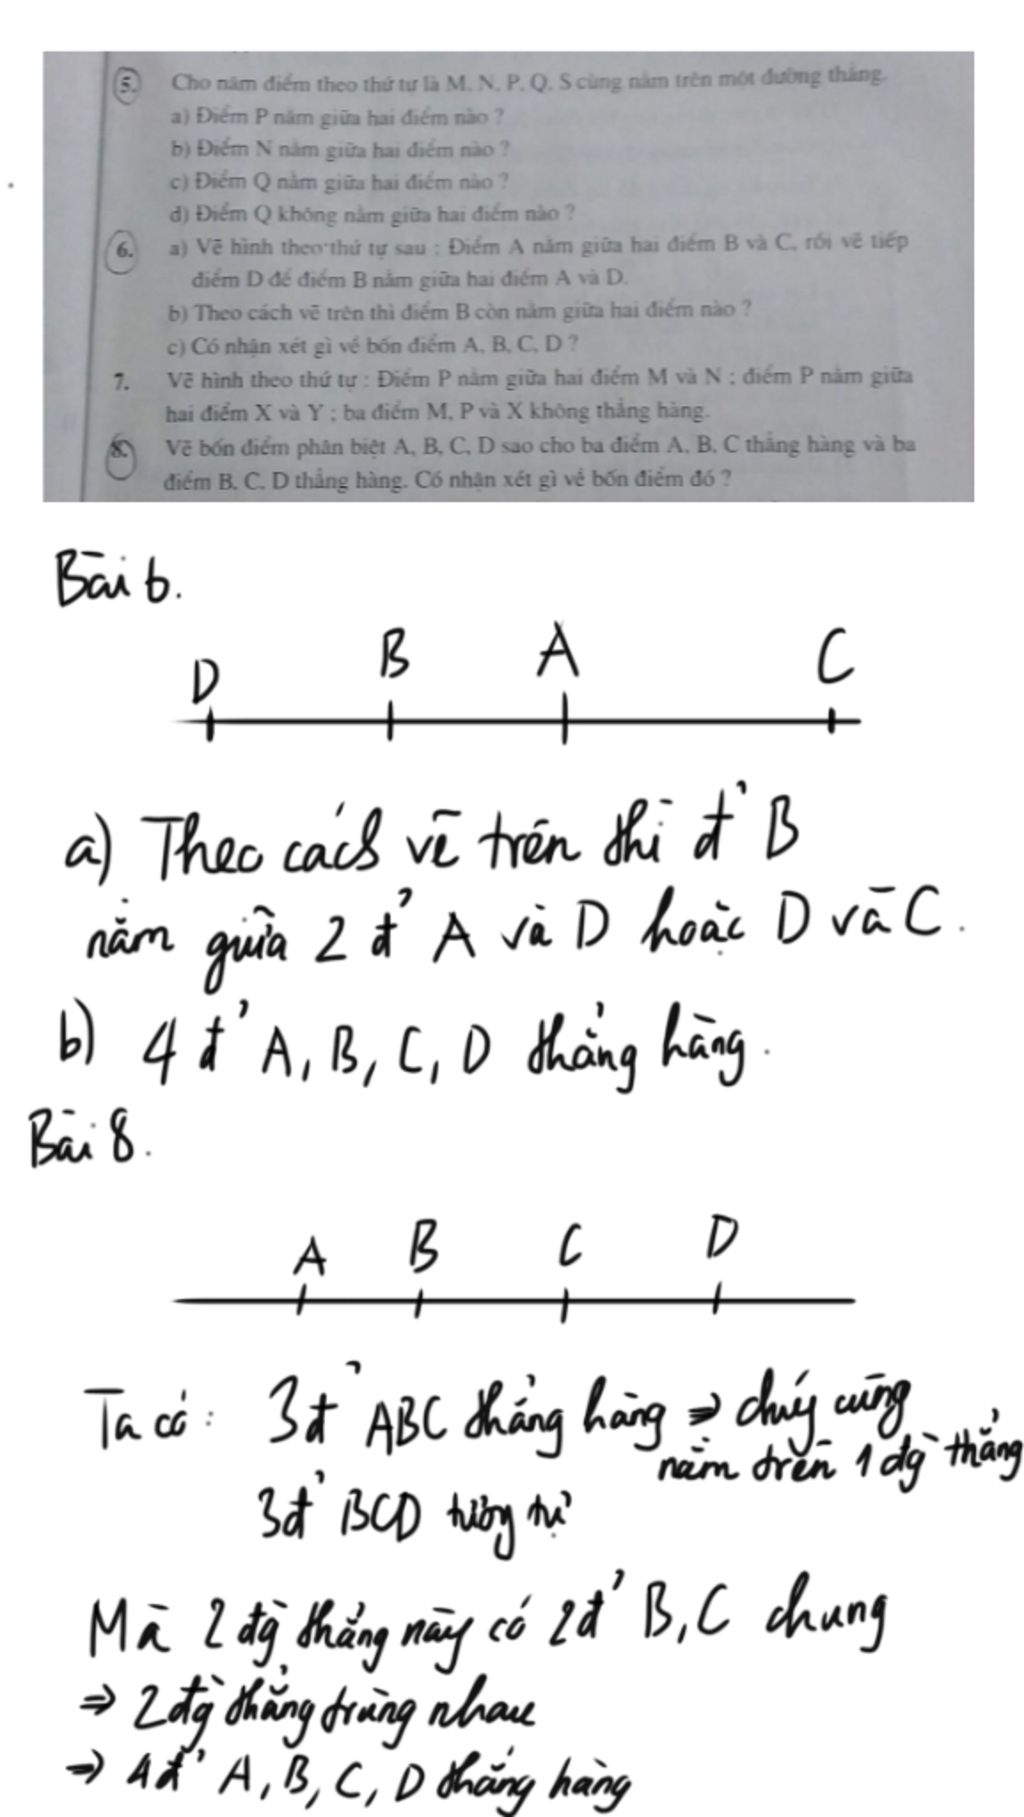 5. Cho năm điểm theo thứ tự là M, N, P, Q, S cùng nằm trên một đường thẳng.
a) Điểm P nằm giữa hai điểm nào ?
b) Điểm N nằm giữa hai điểm nào ?
c) Điểm Q nằm giữa hai điểm nào ?
d) Điểm Q không nằm giữa hai điểm nào ?
6. a) Vẽ hình theo thứ tự sau : Điểm A nằm giữa hai điểm B và C, rồi vẽ tiếp
điểm D để điểm B nằm giữa hai điểm A và D.
b) Theo cách vẽ trên thì điểm B còn nằm giữa hai điểm nào ?
c) Có nhận xét gì về bốn điểm A, B, C, D ?
7. Vẽ hình theo thứ tự : Điểm P nằm giữa hai điểm M và N ; điểm P nằm giữa
hai điểm X và Y ; ba điểm M, P và X không thẳng hàng.
8. Vẽ bốn điểm phân biệt A, B, C, D sao cho ba điểm A, B, C thẳng hàng và ba
điểm B, C, D thẳng hàng. Có nhận xét gì về bốn điểm đó ?
Bài 6.
D B A C
a) Theo cách vẽ trên thì đ' B
nằm giữa 2 đ' A và D hoặc D và C.
b) 4 đ' A, B, C, D thẳng hàng.
Bài 8.
A B C D
Ta có : 3đ' ABC thẳng hàng ⇒ chúng cùng
nằm trên 1 đg` thẳng
3đ' BCD tương tự
Mà 2 đg` thẳng này có 2đ' B, C chung
⇒ 2 đg` thẳng trùng nhau
⇒ 4đ' A, B, C, D thẳng hàng